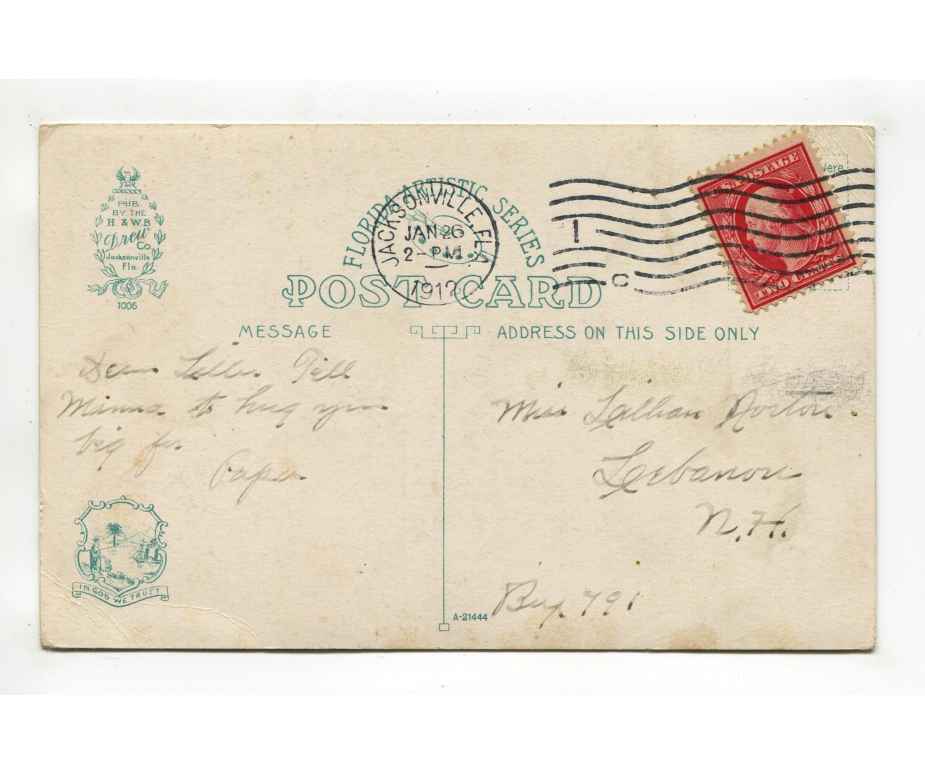 PUB.
BY THE
H & W.B
Drew
Co.
Jacksonville
Fla.
1006
FLORIDA ARTISTIC SERIES
JACKSONVILLE, FLA.
JAN 26
2 - PM
1912
1
C
U.S. POSTAGE
TWO CENTS
Here
POST CARD
MESSAGE
ADDRESS ON THIS SIDE ONLY
Dear Tell
Minna to hug you
big for
Papa
Miss Lillian
Lebanon
N.H.
791
IN GOD WE TRUST
A-21444